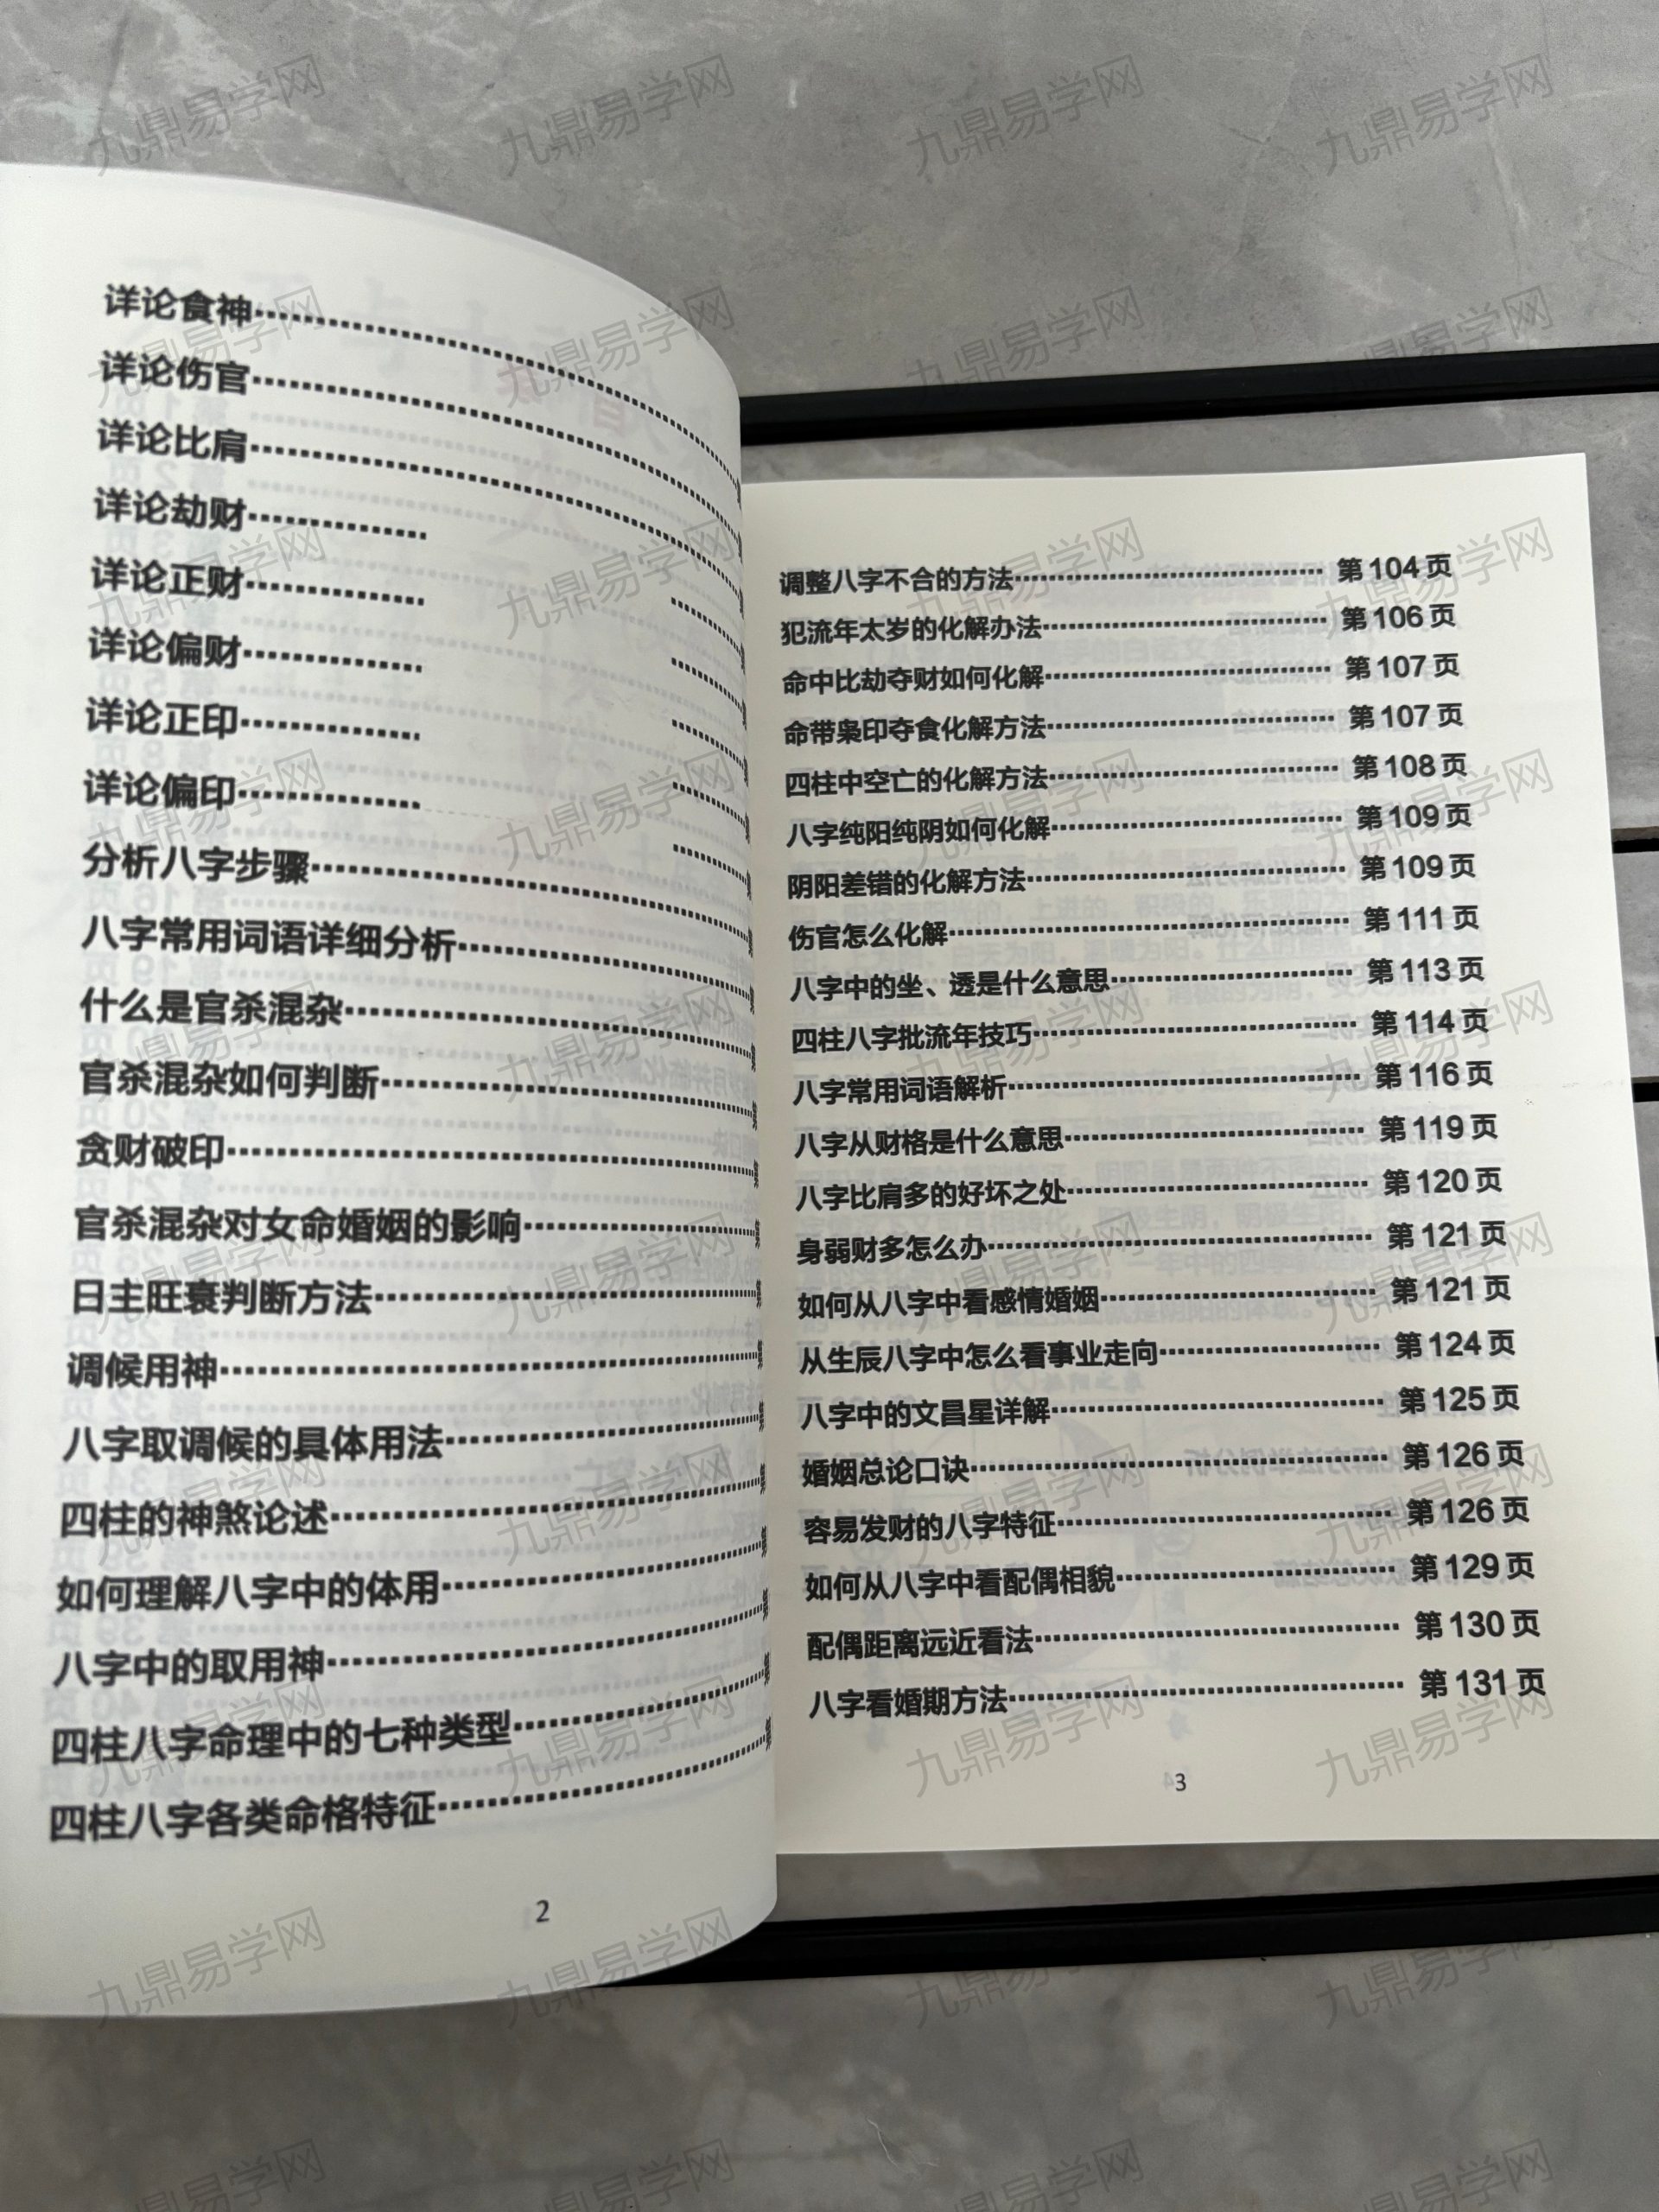 详论食神
详论伤官
详论比肩
详论劫财
详论正财
详论偏财
详论正印
详论偏印
分析八字步骤
八字常用词语详细分析
什么是官杀混杂
官杀混杂如何判断
贪财破印
官杀混杂对女命婚姻的影响
日主旺衰判断方法
调候用神
八字取调候的具体用法
四柱的神煞论述
如何理解八字中的体用
八字中的取用神
四柱八字命理中的七种类型
四柱八字各类命格特征
2
调整八字不合的方法 第104页
犯流年太岁的化解办法 第106页
命中比劫夺财如何化解 第107页
命带枭印夺食化解方法 第107页
四柱中空亡的化解方法 第108页
八字纯阳纯阴如何化解 第109页
阴阳差错的化解方法 第109页
伤官怎么化解 第111页
八字中的坐、透是什么意思 第113页
四柱八字批流年技巧 第114页
八字常用词语解析 第116页
八字从财格是什么意思 第119页
八字比肩多的好坏之处 第120页
身弱财多怎么办 第121页
如何从八字中看感情婚姻 第121页
从生辰八字中怎么看事业走向 第124页
八字中的文昌星详解 第125页
婚姻总论口诀 第126页
容易发财的八字特征 第126页
如何从八字中看配偶相貌 第129页
配偶距离远近看法 第130页
八字看婚期方法 第131页
3
九鼎易学网